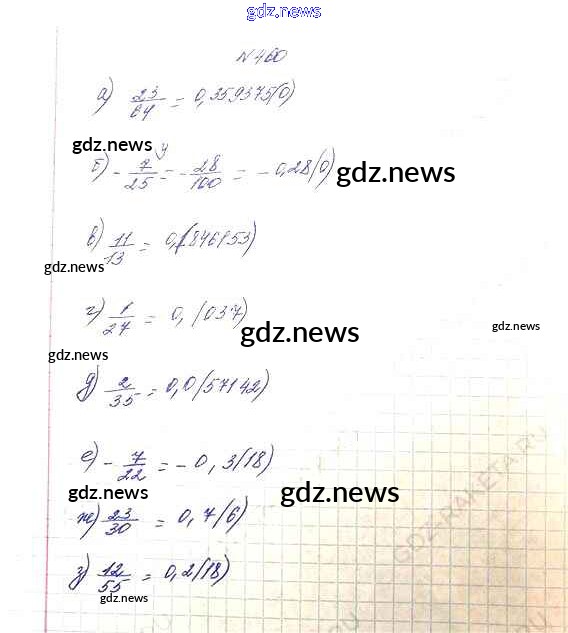 gdz.news
N 460
а) 23/64 = 0,359375(0)
gdz.news
б) - 7/25 = - 28/100 = - 0,28(0) gdz.news
4
в) 11/13 = 0,(846153)
gdz.news
г) 1/27 = 0,(037)
gdz.news
gdz.news
gdz.news
д) 2/35 = 0,0(57142)
е) - 7/22 = - 0,3(18)
gdz.news
gdz.news
ж) 23/30 = 0,7(6)
з) 12/55 = 0,2(18)
gdz.news
GDZ-RAKETA.RU